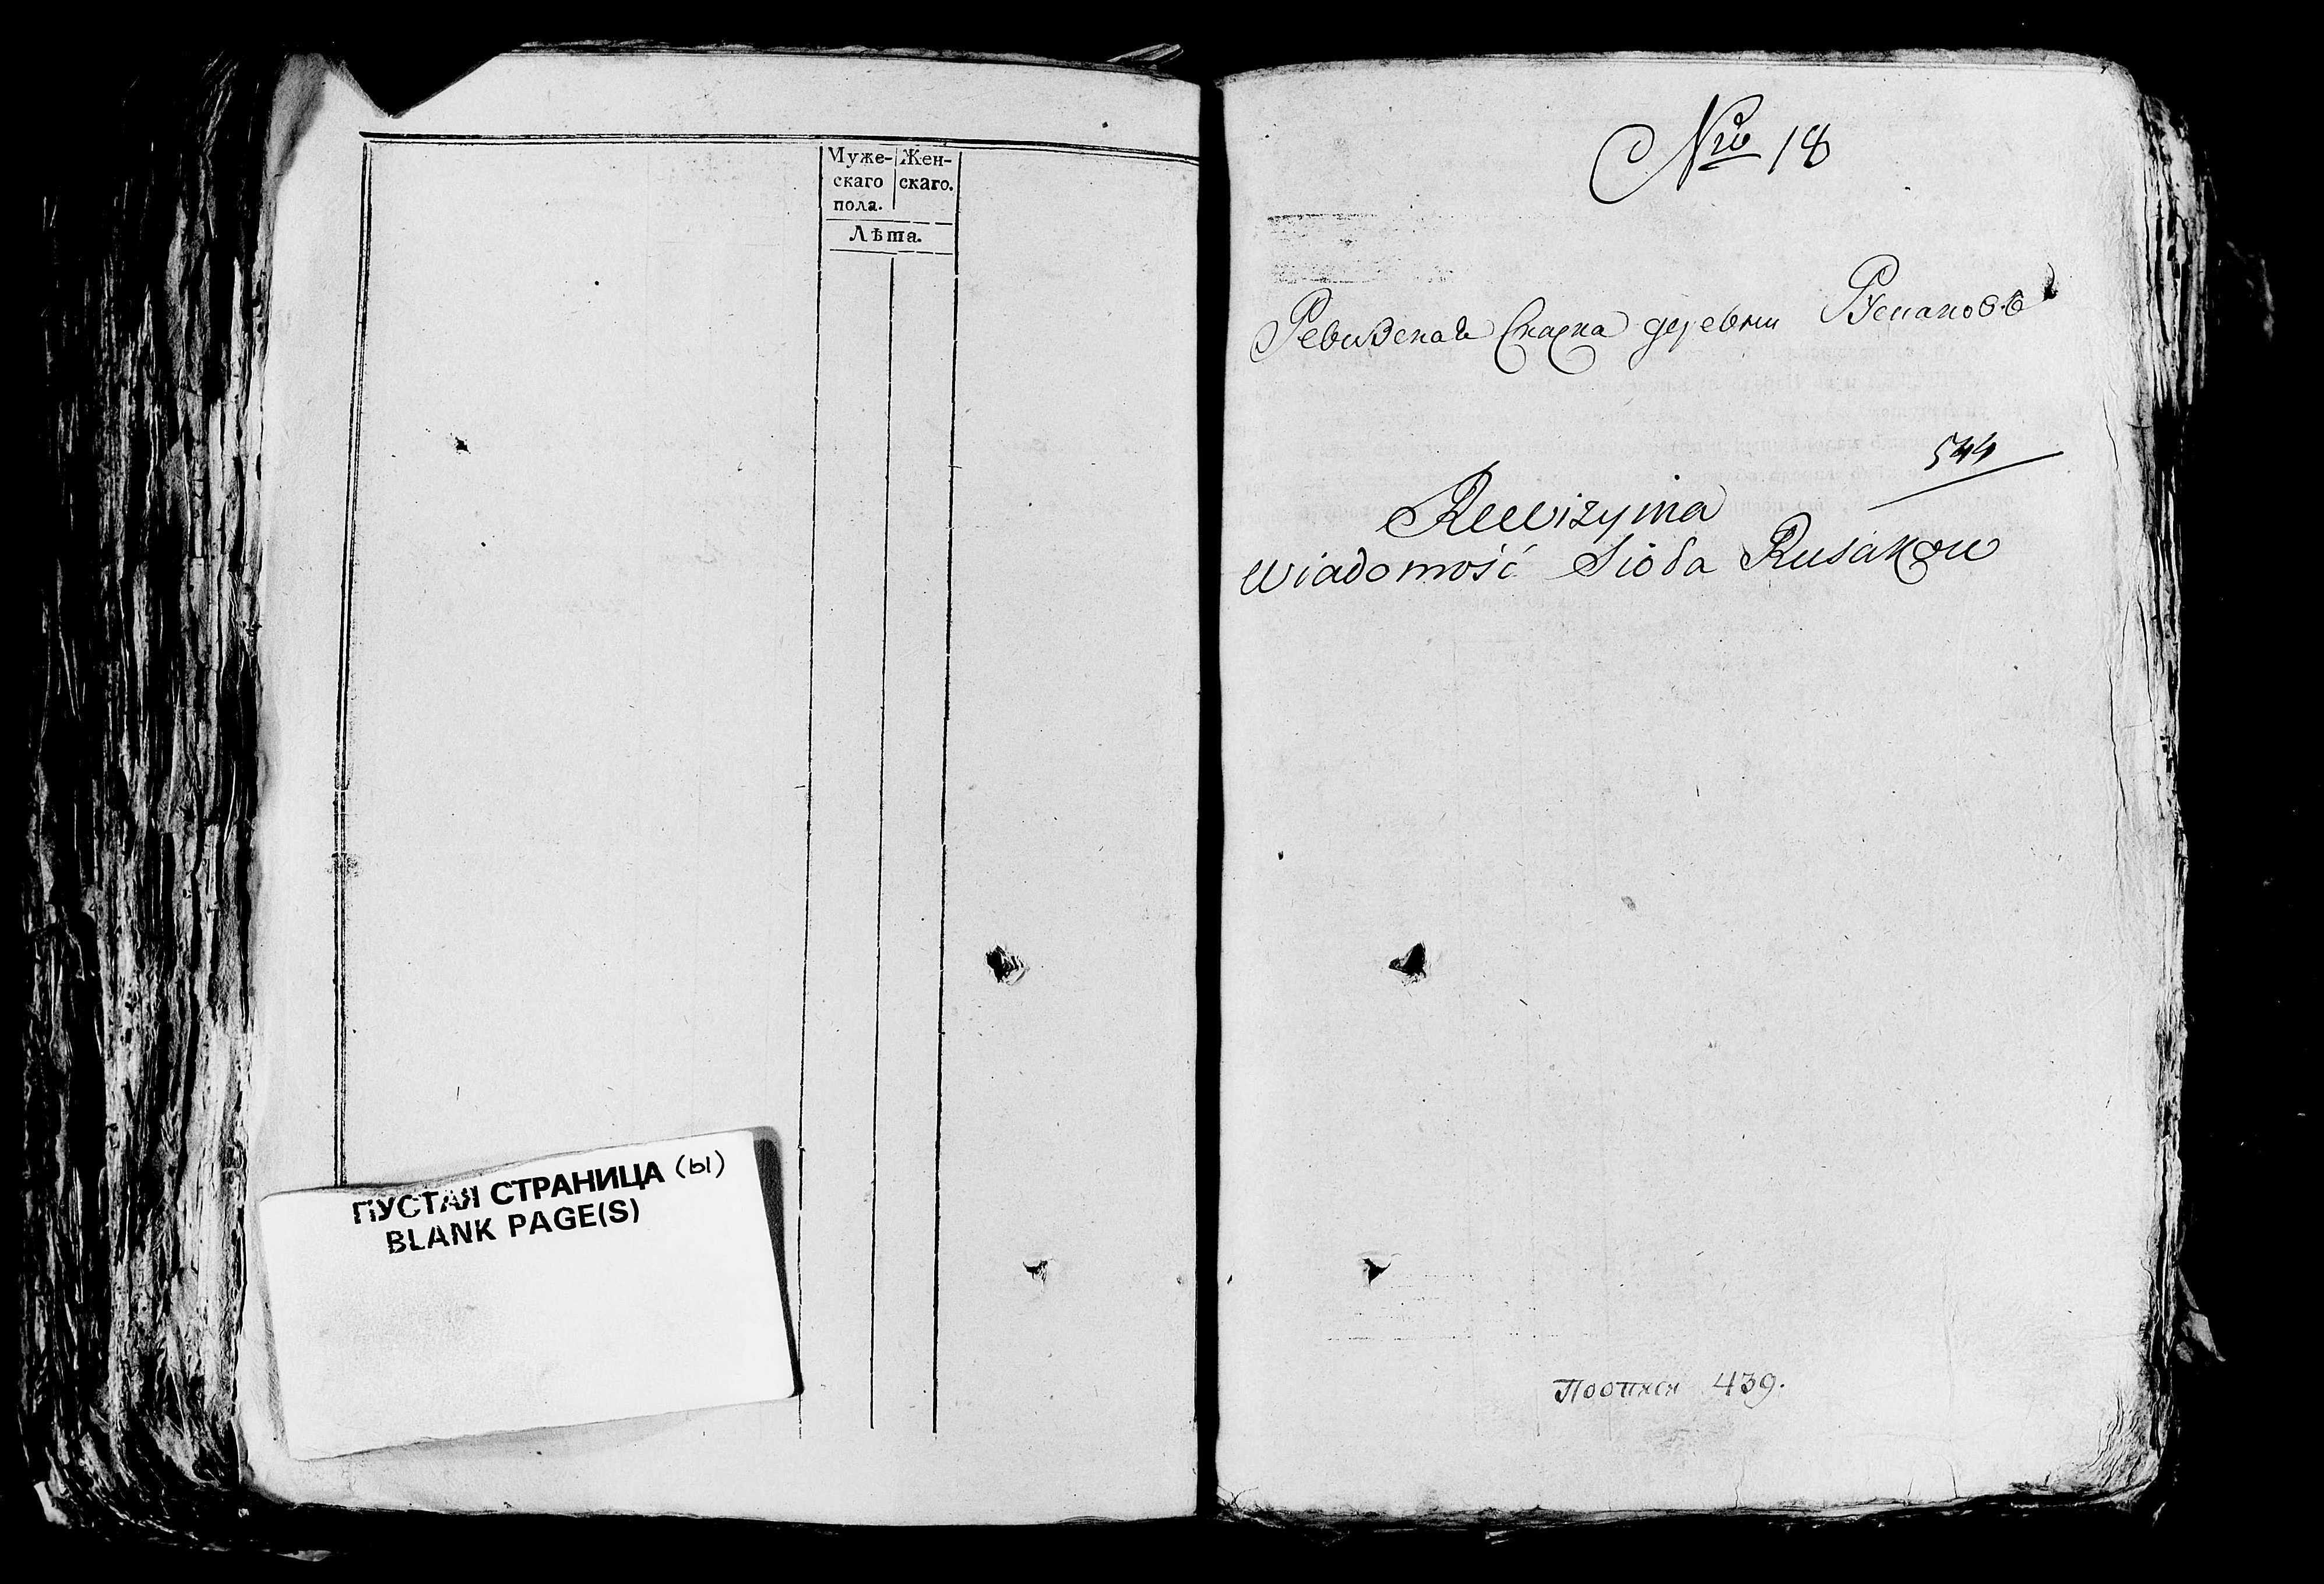 Муже- Жен-
скаго скаго.
пола.
Лѣта.
ПУСТАЯ СТРАНИЦА (ы)
BLANK PAGE(S)
Nro 18
Ревизская Сказка деревни
544
Rewizyina
wiadomość Sioła Rusakow
439.